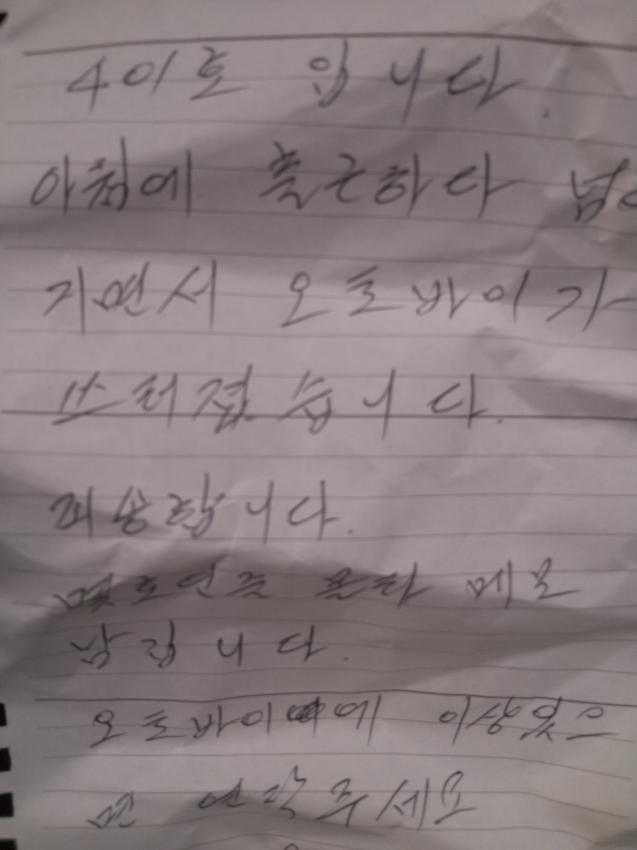 401호 입니다.
아침에 출근하다 넘어
지면서 오토바이가
쓰러졌습니다.
죄송합니다.
몇호인줄 몰라 메모
남깁니다.
오토바이에 이상있으
면 연락주세요